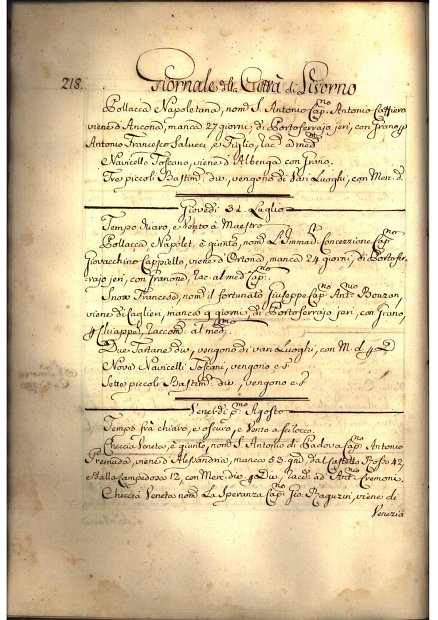 218. Giornale della Città di Livorno
Pollacca Napoletana, nom.ᵃ S. Antonio Cap.ⁿᵒ Antonio Caffiero
viene d'Ancona, manca 27 giorni, di Portoferrajo jeri, con Grano p
Antonio Francesco Salucci, e Figlio, rac.ᵗᵃ a med.ᵐⁱ
Navicello Toscano, viene d'Albenga con Grano.
Tre piccoli Bastim.ᵗⁱ div., vengono di Vari Luoghi, con Mer. d.
Giovedì 31. Luglio
Tempo chiaro, e Vento à Maestro
Pollacca Napolet. è giunto, nom. L'Immac. Concezzione Cap.ⁿᵒ
Giovacchino Cappiello, viene d'Ortona, manca 24 giorni, di Portofer-
rajo jeri, con Granone, rac. al med.ᵐᵒ Cap.ⁿᵒ
Snow Francese, nom. il fortunato Giuseppe Cap.ⁿᵒ Ant.ⁿⁱᵒ Bouzan,
viene di Caglieri, manca 9 giorni, di Portoferrajo jeri, con Grano,
p Chiappe, raccom. al med.ᵐᵒ
Due Tartane div., vengono di vari Luoghi, con M. d. p D.
Nove Navicelli Toscani, vengono c.s.
Sette piccoli Bastim.ᵗⁱ div., vengono c.s.
Venerdì p.ᵐᵒ Agosto
Tempo frà chiaro, e oscuro, e Vento a scilocco.
Checcia Veneta, è giunto, nom. S. Antonio di Padova Cap.ⁿᵒ Antonio
Premuda, viene d'Alessandria, manca 53. gni dal Castello Rosso 42,
e dalla Lampedosa 12, con Mer. div. p Div., rac. ad Ant.ⁿⁱᵒ Cremoni.
Checcia Veneta nom. La Speranza Cap.ⁿᵒ Gio. Raguzini, viene di
Venezia